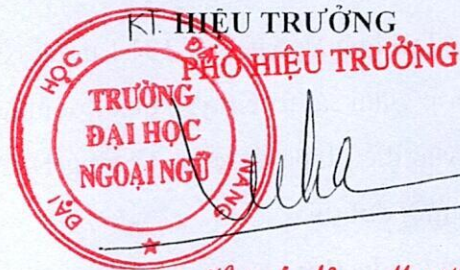 KT. HIỆU TRƯỞNG
PHÓ HIỆU TRƯỞNG
ĐẠI HỌC ĐÀ NẴNG
TRƯỜNG
ĐẠI HỌC
NGOẠI NGỮ